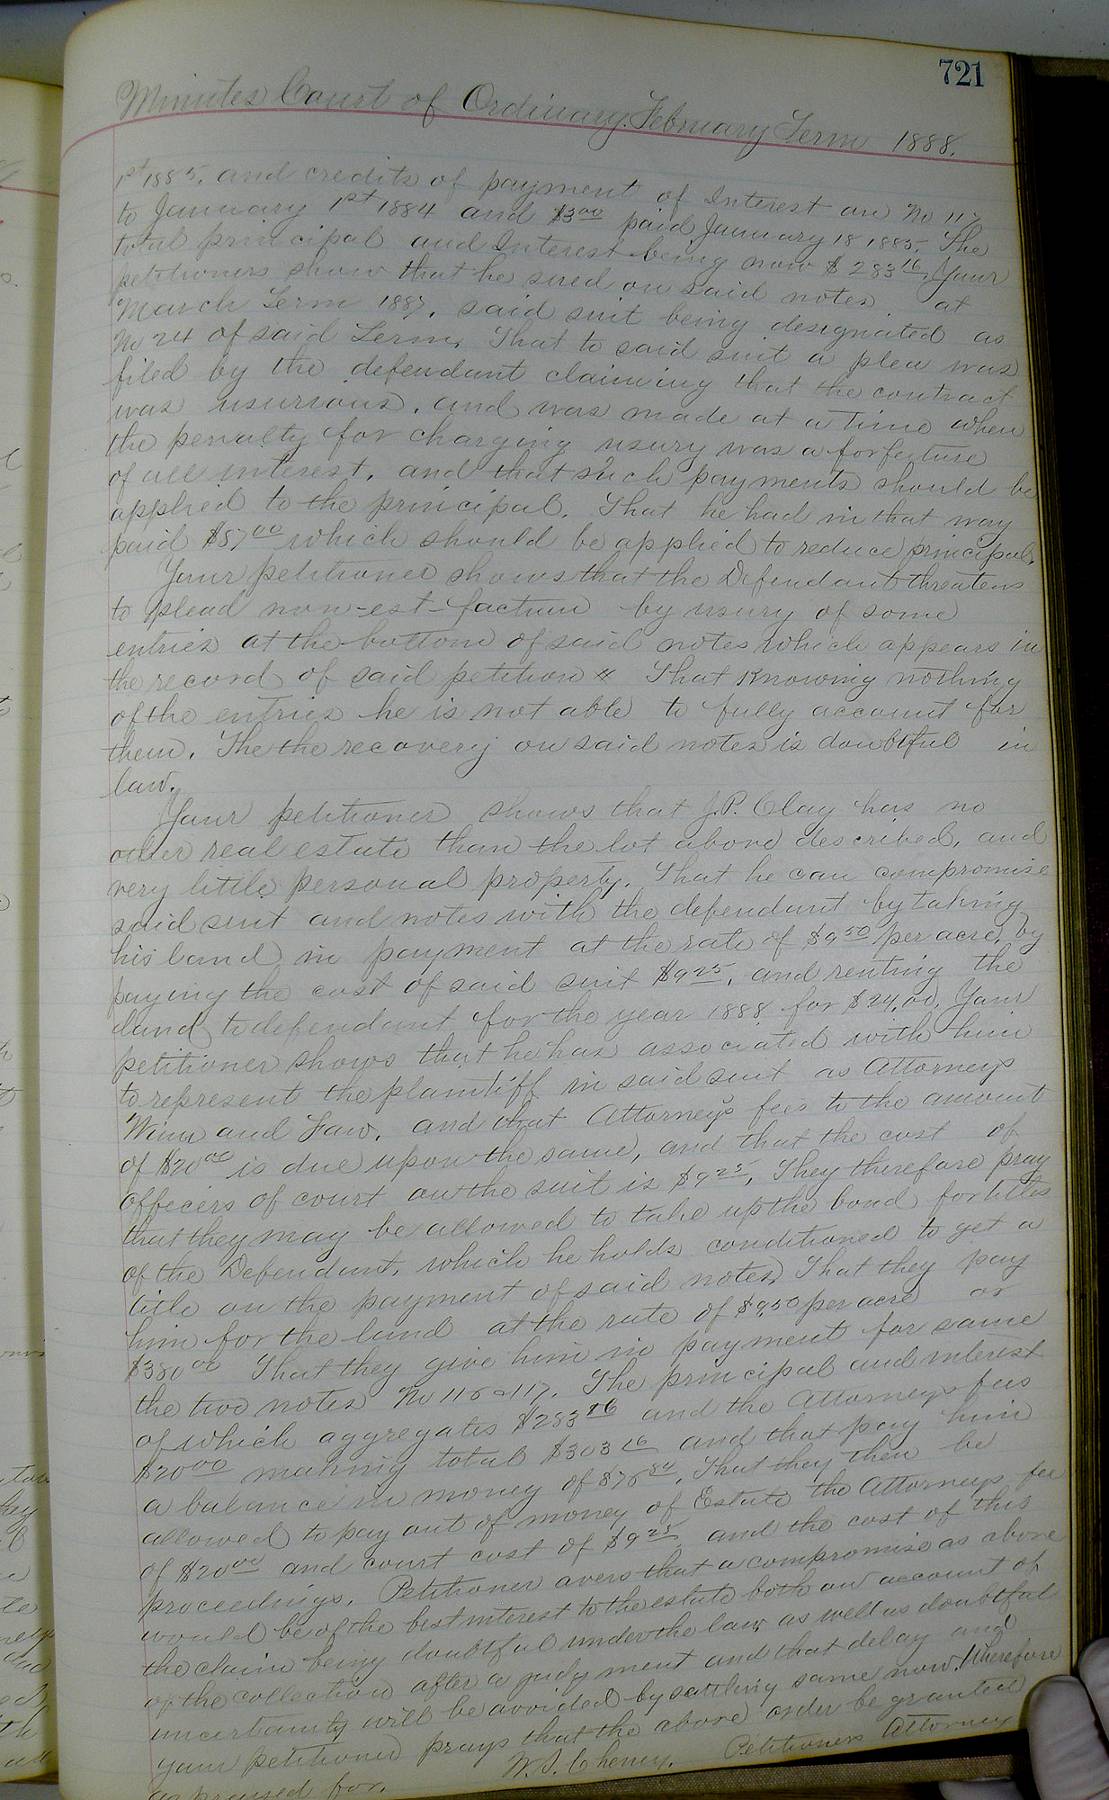 721
Minutes Court of Ordinary February Term 1888.
1st 1885, and credits of payment of Interest on No 117
to January 1st 1884 and $3.00 paid January 18 1885. The
total principal and Interest being now $283.16. Your
petitioners show that he sued on said notes at
March Term 1887, said suit being designated as
No 24 of said Term. That to said suit a plea was
filed by the defendant claiming that the contract
was usurious, and was made at a time when
the penalty for charging usury was a forfeiture
of all interest, and that such payments should be
applied to the principal. That he had in that way
paid $57.00 which should be applied to reduce principal.
Your petitioner shows that the Defendant threatens
to plead non-est-factum by usury of some
entries at the bottom of said notes which appears in
the record of said petition " That Knowing nothing
of the entries he is not able to fully account for
them. The the recovery on said notes is doubtful in
law.
Your petitioner shows that J.P. Clay has no
other real estate than the lot above described, and
very little personal property. That he can compromise
said suit and notes with the defendant by taking
his land in payment at the rate of $9.50 per acre, by
paying the cost of said suit $9.25, and renting the
land to defendant for the year 1888 for $24.00. Your
petitioner shows that he has associated with him
to represent the plaintiff in said suit as Attorneys
Winn and Law, and that Attorney's fees to the amount
of $20.00 is due upon the same, and that the cost of
officers of court on the suit is $9.25. They therefore pray
that they may be allowed to take up the bond for titles
of the Defendant, which he holds conditioned to get a
title on the payment of said notes, That they pay
him for the land at the rate of $9.50 per acre or
$380.00 That they give him in payment for same
the two notes No 116 & 117. The principal and interest
of which aggregates $283.16 and the Attorneys fees
$20.00 making total $303.16 and that pay him
a balance in money of $76.84. That they then be
allowed to pay out of money of Estate the Attorneys fee
of $20.00 and court cost of $9.25 and the cost of this
proceedings. Petitioner avers that a compromise as above
would be of the best interest to the estate both on account of
the claim being doubtful under the law, as well as doubtful
of the collection after a judgment and that delay and
uncertainty will be avoided by settling same now. Wherefore
your petitioner prays that the above order be granted
as prayed for. W.S. Cheney. Petitioners Attorney